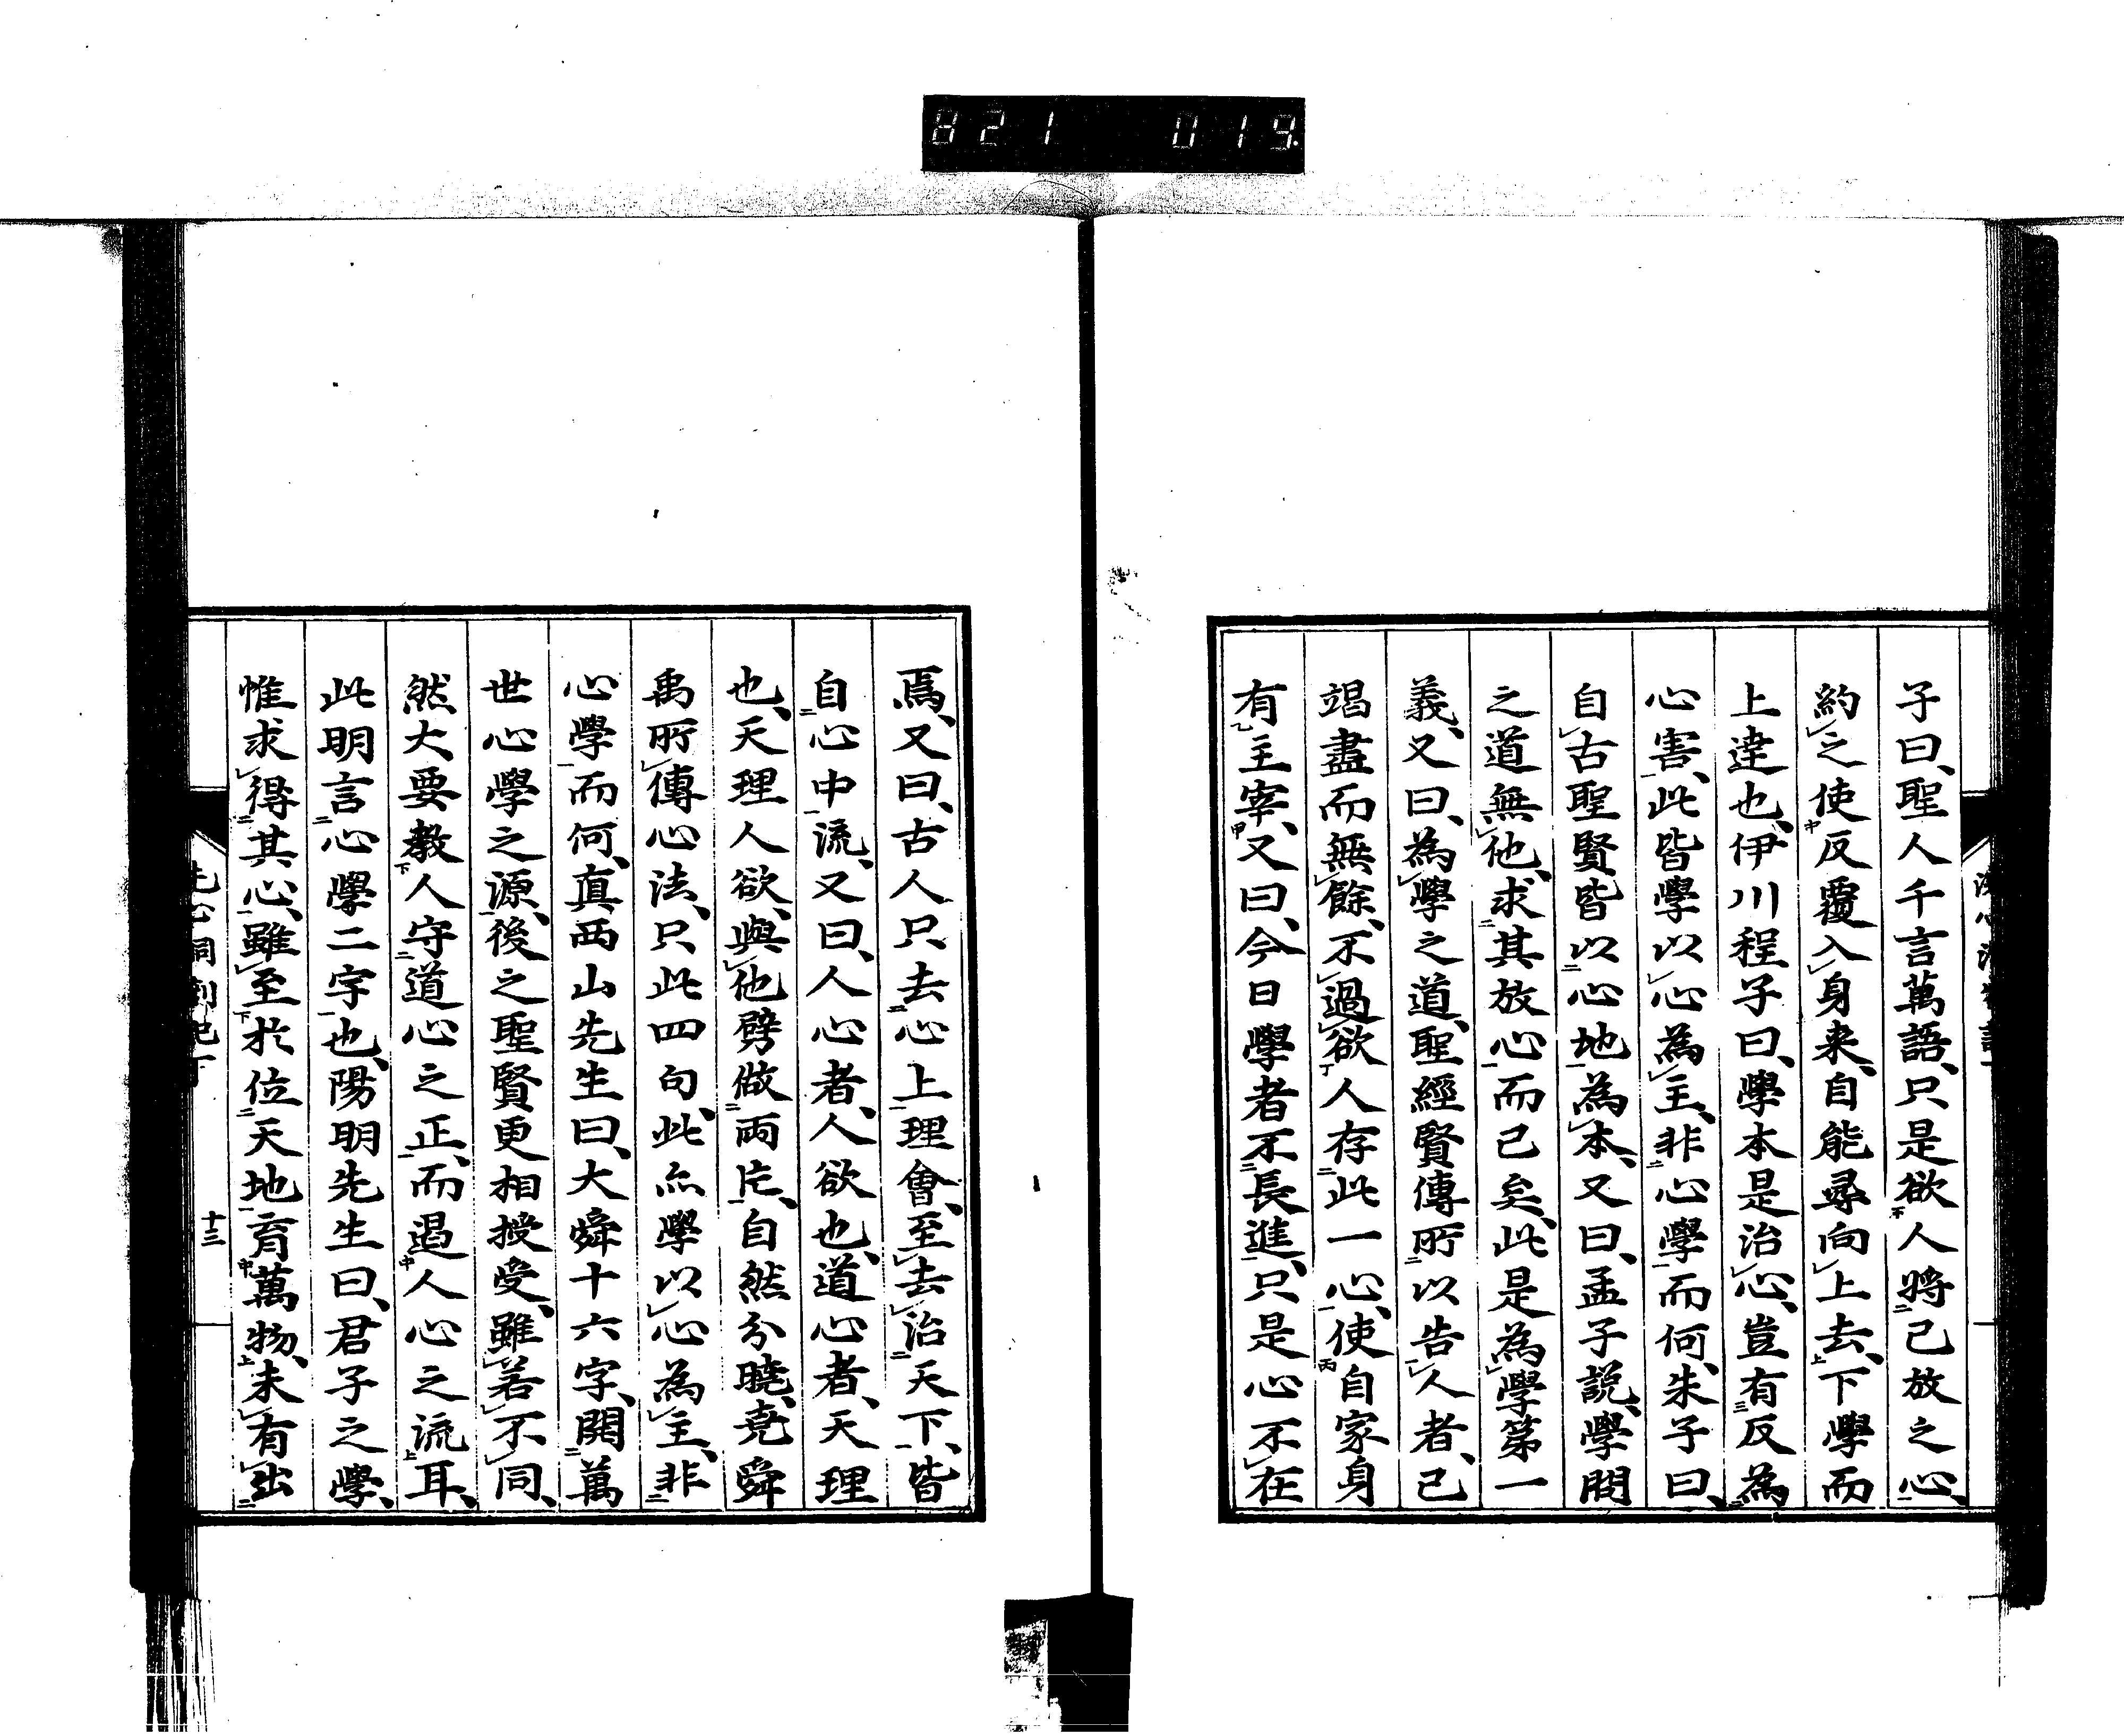 821 019
子曰、聖人千言萬語、只是欲人將己放之心、
約之使反覆入身来、自能尋向上去、下學而
上達也、伊川程子曰、學本是治心、豈有反為
心害、此皆學以心為主、非心學而何、朱子曰、
自古聖賢皆以心地為本、又曰、孟子説、學問
之道無他、求其放心而已矣、此是為學第一
義、又曰、為學之道、聖經賢傳所以告人者、已
竭盡而無餘、不過欲人存此一心、使自家身
有主宰、又曰、今日學者不長進、只是心不在
焉、又曰、古人只去心上理會、至去治天下、皆
自心中流、又曰、人心者、人欲也、道心者、天理
也、天理人欲、與他劈做兩片、自然分曉、堯舜
禹所傳心法、只此四句、此亦學以心為主、非
心學而何、真西山先生曰、大舜十六字、開萬
世心學之源、後之聖賢更相授受、雖若不同、
然大要教人守道心之正、而遏人心之流耳、
此明言心學二字也、陽明先生曰、君子之學、
惟求得其心、雖至於位天地育萬物、未有出
十三